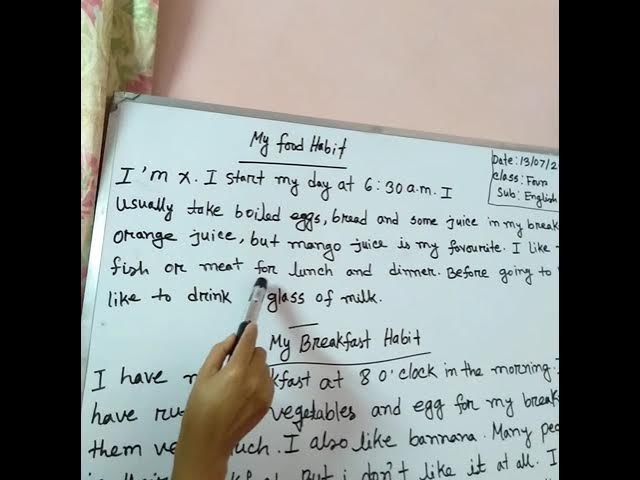 My food Habit
Date: 13/07/2
Class: Four
Sub: English
I'm X. I start my day at 6:30 a.m. I
usually take boiled eggs, bread and some juice in my break
orange juice, but mango juice is my favourite. I like
fish or meat for lunch and dinner. Before going to
like to drink glass of milk.
My Breakfast Habit
I have kfast at 8 o'clock in the morning.
have vegetables and egg for my break
them much. I also like bannana. Many peo
But i don't like it at all. I